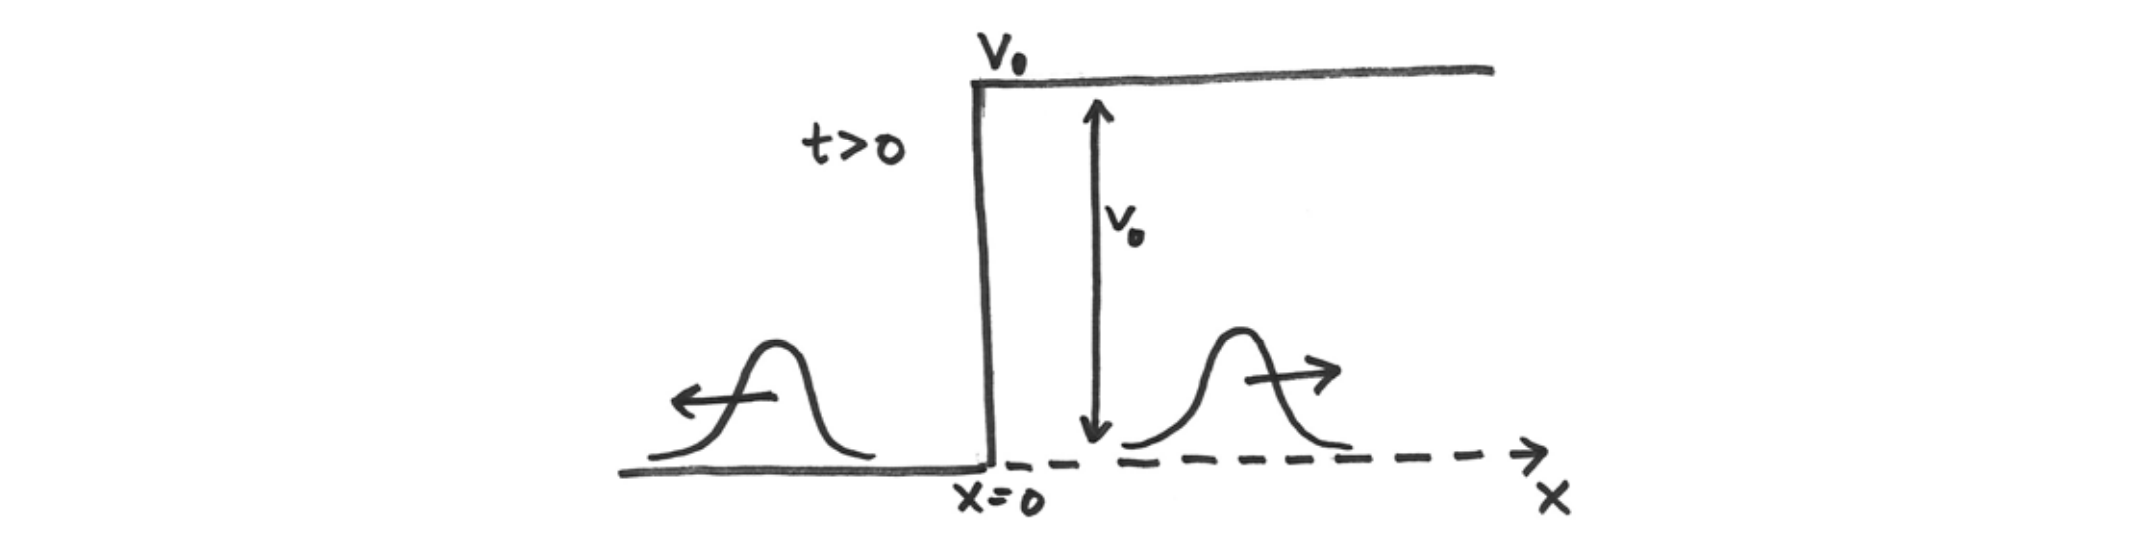 V₀
t>0
V₀
x=0
x